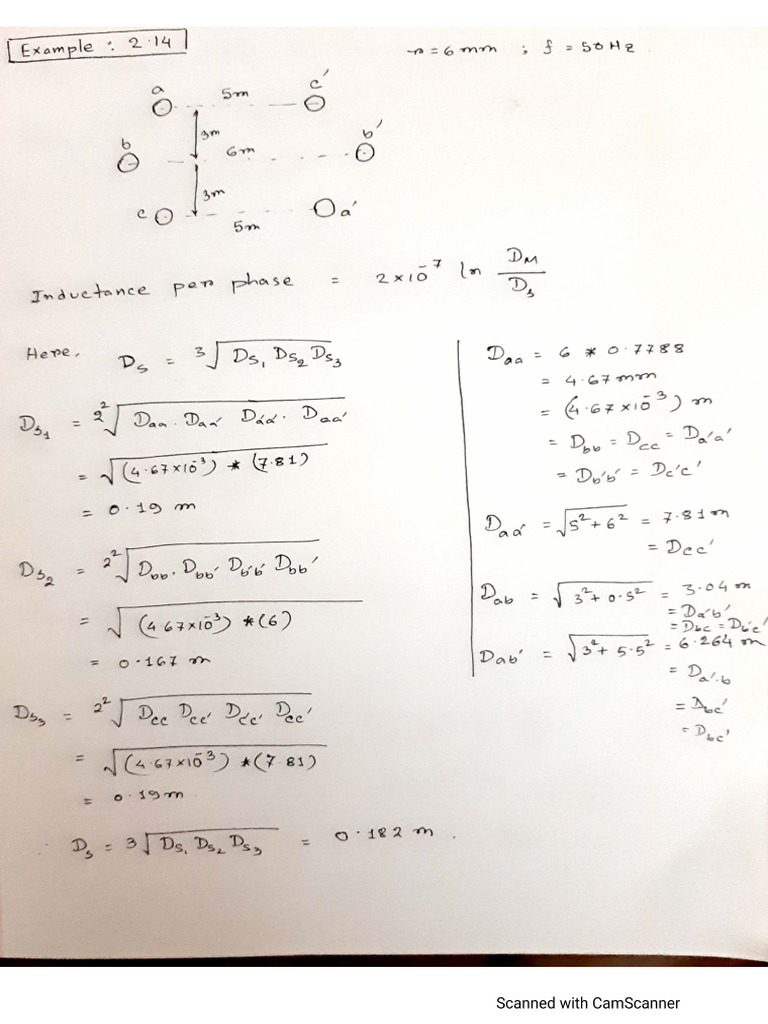 Example : 2.14
r = 6 mm ; f = 50 Hz.
a 5m c'
3m
b 6m b'
3m
c 5m a'
Inductance per phase = 2×10⁻⁷ ln D_M/D_s
Here, D_s = ³√(D_s₁ D_s₂ D_s₃)
D_s₁ = 2²√(Daa . Daa' Da'a' . Daa')
= √((4.67×10⁻³) * (7.81))
= 0.19 m
D_s₂ = 2²√(Dbb . Dbb' Db'b' Dbb')
= √((4.67×10⁻³) * (6))
= 0.167 m
D_s₃ = 2²√(Dcc Dcc' Dc'c' Dcc')
= √((4.67×10⁻³) * (7.81))
= 0.19 m.
∴ D_s = ³√(D_s₁ D_s₂ D_s₃) = 0.182 m.
Daa = 6 * 0.7788
= 4.67 mm
= (4.67×10⁻³) m
= Dbb = Dcc = Da'a'
= Db'b' = Dc'c'
Daa' = √(5² + 6²) = 7.81 m
= Dcc'
Dab = √(3² + 0.5²) = 3.04 m
= Da'b'
= Dbc = Db'c'
Dab' = √(3² + 5.5²) = 6.264 m
= Da'.b
= Dbc'
= Dbc'
Scanned with CamScanner